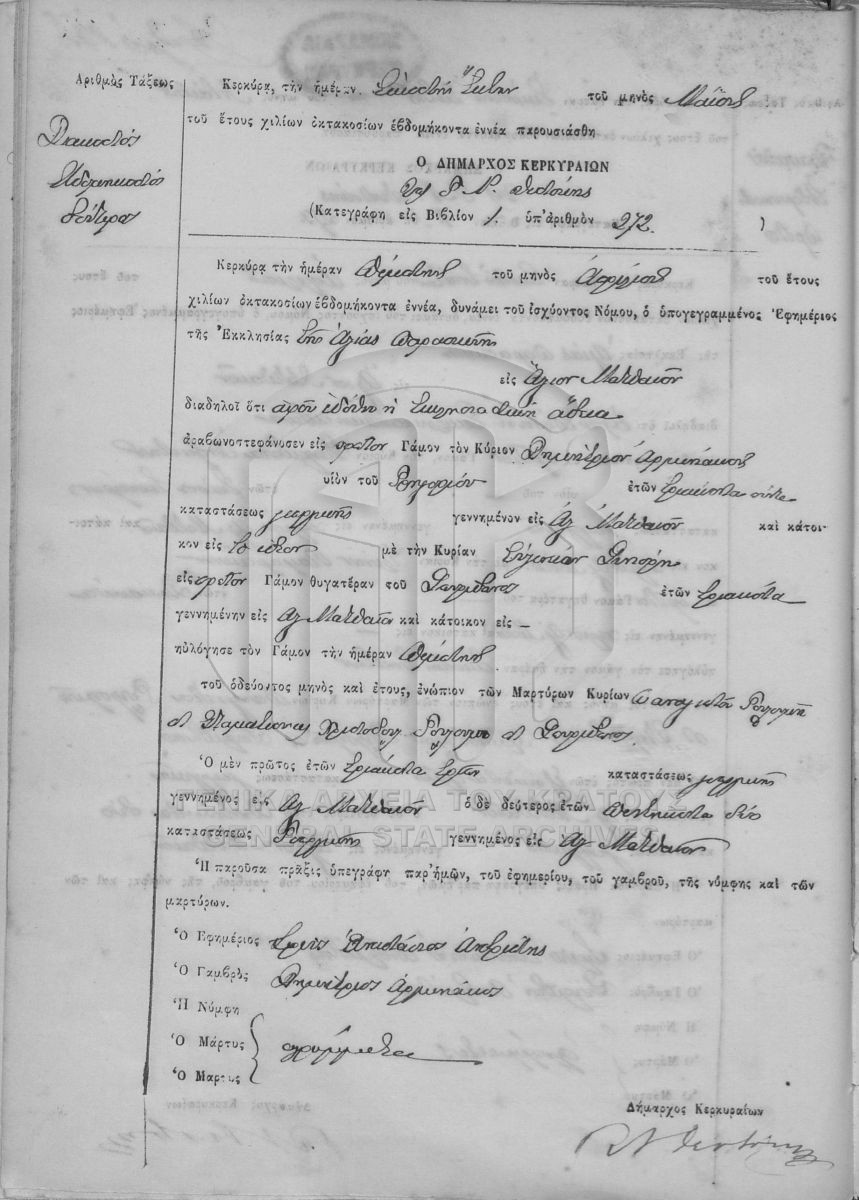 Ἀριθμὸς Τάξεως
Διακοστὸς
Ἑβδομηκοστὸς
δεύτερος
Κερκύρᾳ, τὴν ἡμέραν Εἰκοστὴν Ἕκτην τοῦ μηνὸς Μαΐου
τοῦ ἔτους χιλίων ὀκτακοσίων ἑβδομήκοντα ἐννέα παρουσιάσθη
Ο ΔΗΜΑΡΧΟΣ ΚΕΡΚΥΡΑΙΩΝ
(Κατεγράφη εἰς Βιβλίον 1. ὑπ' ἀριθμὸν 272. )
Κερκύρᾳ τὴν ἡμέραν πέμπτην τοῦ μηνὸς Ἀπριλίου τοῦ ἔτους
χιλίων ὀκτακοσίων ἑβδομήκοντα ἐννέα, δυνάμει τοῦ ἰσχύοντος Νόμου, ὁ ὑπογεγραμμένος Ἐφημέριος
τῆς Ἐκκλησίας τῆς Ἁγίας Παρασκευῆς
εἰς Ἅγιον Ματθαῖον
διαδηλοῖ ὅτι ἀφοῦ ἐδόθη ἡ Ἐκκλησιαστικὴ ἄδεια
ἀραβωνοστεφάνοσεν εἰς πρῶτον Γάμον τὸν Κύριον Δημήτριον Ἀρμενάκον
υἱὸν τοῦ ἐτῶν τριάκοντα πέντε
καταστάσεως γεωργικῆς γεννημένον εἰς Ἁγ Ματθαῖον καὶ κάτοι-
κον εἰς τὸ ἴδιον μὲ τὴν Κυρίαν
εἰς πρῶτον Γάμον θυγατέραν τοῦ Σπυρίδωνος ἐτῶν τριάκοντα
γεννημένην εἰς Ἁγ Ματθαῖον καὶ κάτοικον εἰς –
ηὐλόγησε τὸν Γάμον τὴν ἡμέραν πέμπτην
τοῦ ὁδεύοντος μηνὸς καὶ ἔτους, ἐνώπιον τῶν Μαρτύρων Κυρίων Παναγιώτου
Σπυρίδωνος
Ὁ μὲν πρῶτος ἐτῶν τριάκοντα τριῶν καταστάσεως γεωργικῆς
γεννημένος εἰς Ἁγ Ματθαῖον ὁ δὲ δεύτερος ἐτῶν πεντήκοντα δύο
καταστάσεως Γεωργικῆς γεννημένος εἰς Ἁγ Ματθαῖον
Ἡ παροῦσα πρᾶξις ὑπεγράφη παρ' ἡμῶν, τοῦ ἐφημερίου, τοῦ γαμβροῦ, τῆς νύμφης καὶ τῶν
μαρτύρων.
Ὁ Ἐφημέριος Ἱερεὺς Ἀναστάσιος
Ὁ Γαμβρὸς Δημήτριος Ἀρμενάκος
Ἡ Νύμφη
Ὁ Μάρτυς ἀγράμματοι
Ὁ Μάρτυς
Δήμαρχος Κερκυραίων
ΓΕΝΙΚΑ ΑΡΧΕΙΑ ΤΟΥ ΚΡΑΤΟΥΣ
GENERAL STATE ARCHIVES